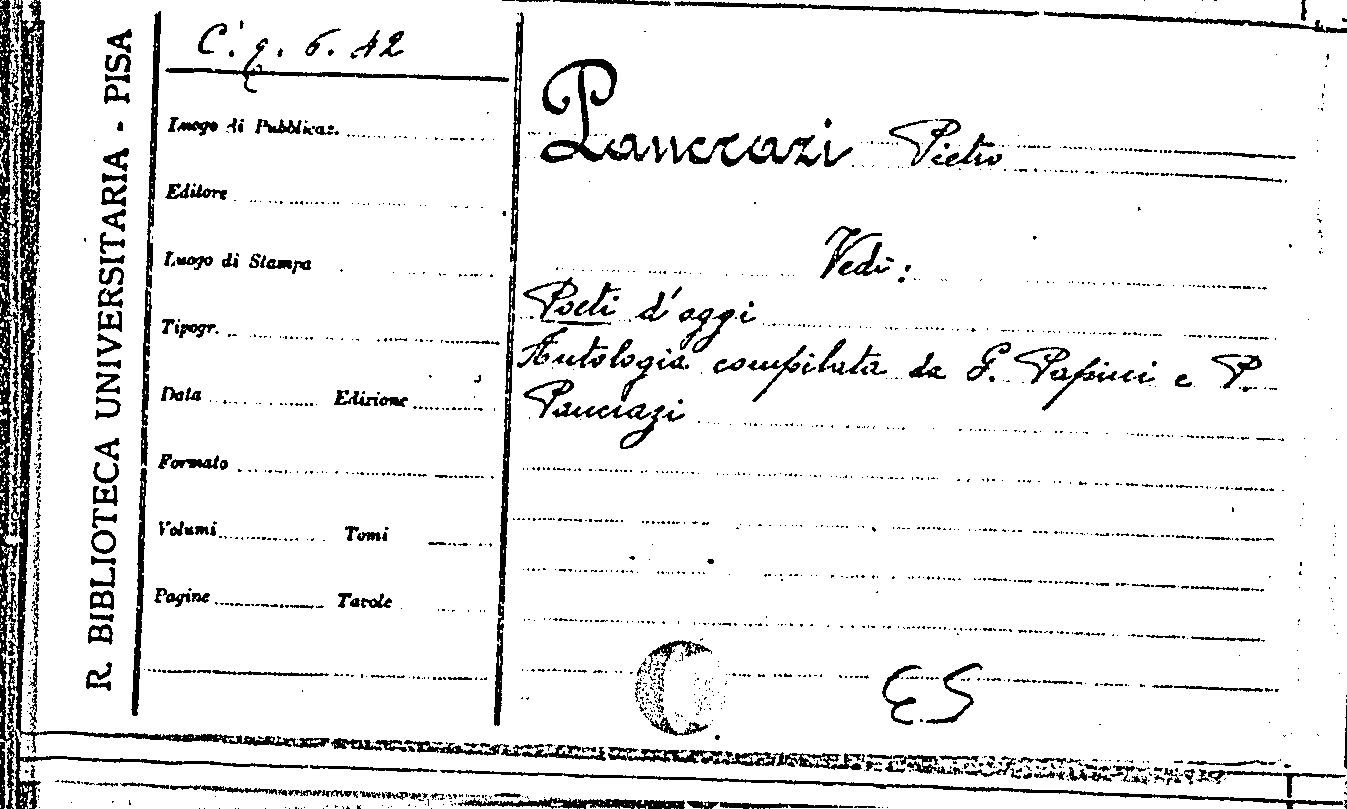 R. BIBLIOTECA UNIVERSITARIA - PISA
C. q. 6. 42
Luogo di Pubblicaz.
Editore
Luogo di Stampa
Tipogr.
Data Edizione
Formato
Volumi Tomi
Pagine Tavole
Pancrazi Pietro
Vedi:
Poeti d'oggi
Antologia compilata da G. Papini e P.
Pancrazi
ES